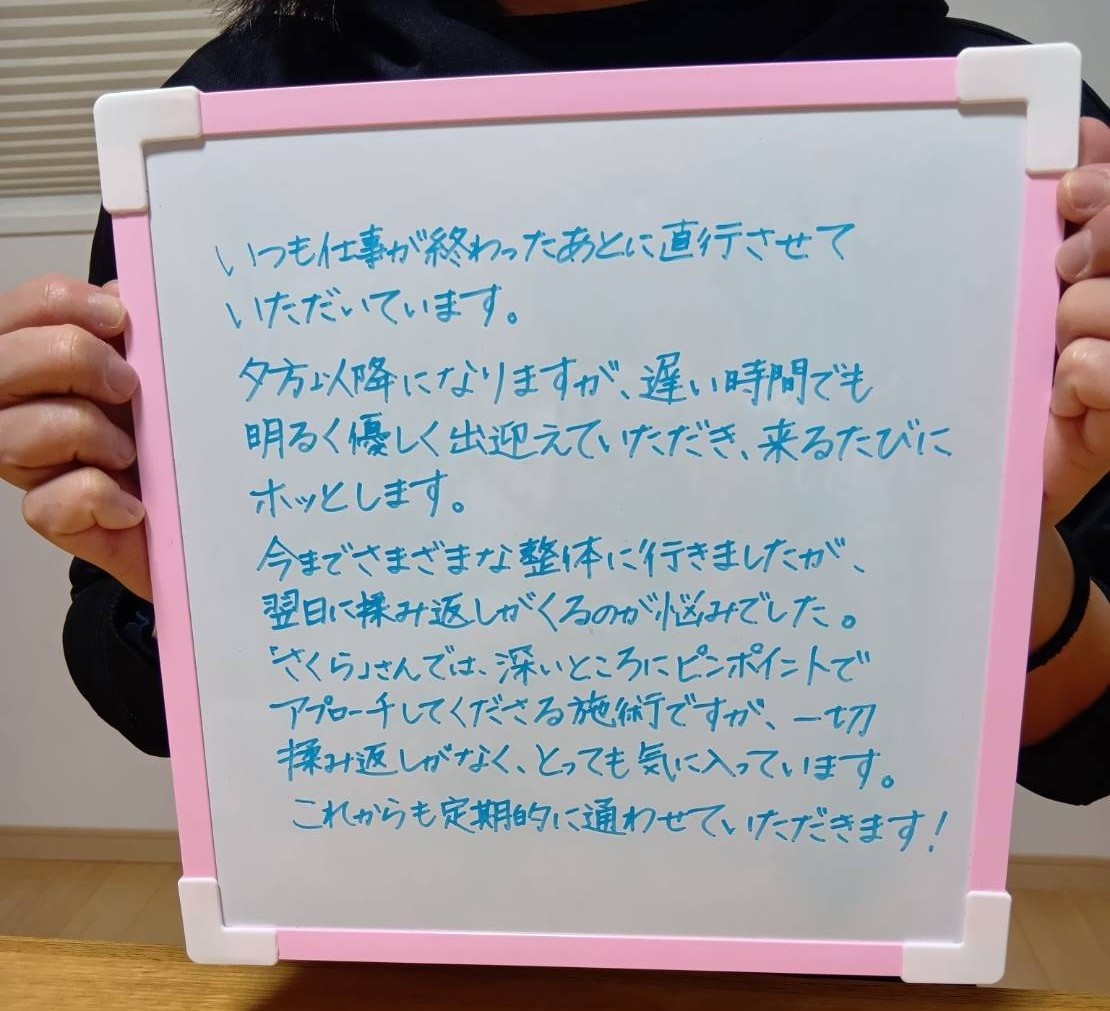 いつも仕事が終わったあとに直行させて
いただいています。
夕方以降になりますが、遅い時間でも
明るく優しく出迎えていただき、来るたびに
ホッとします。
今までさまざまな整体に行きましたが、
翌日に揉み返しがくるのが悩みでした。
「さくら」さんでは、深いところにピンポイントで
アプローチしてくださる施術ですが、一切
揉み返しがなく、とっても気に入っています。
これからも定期的に通わせていただきます!